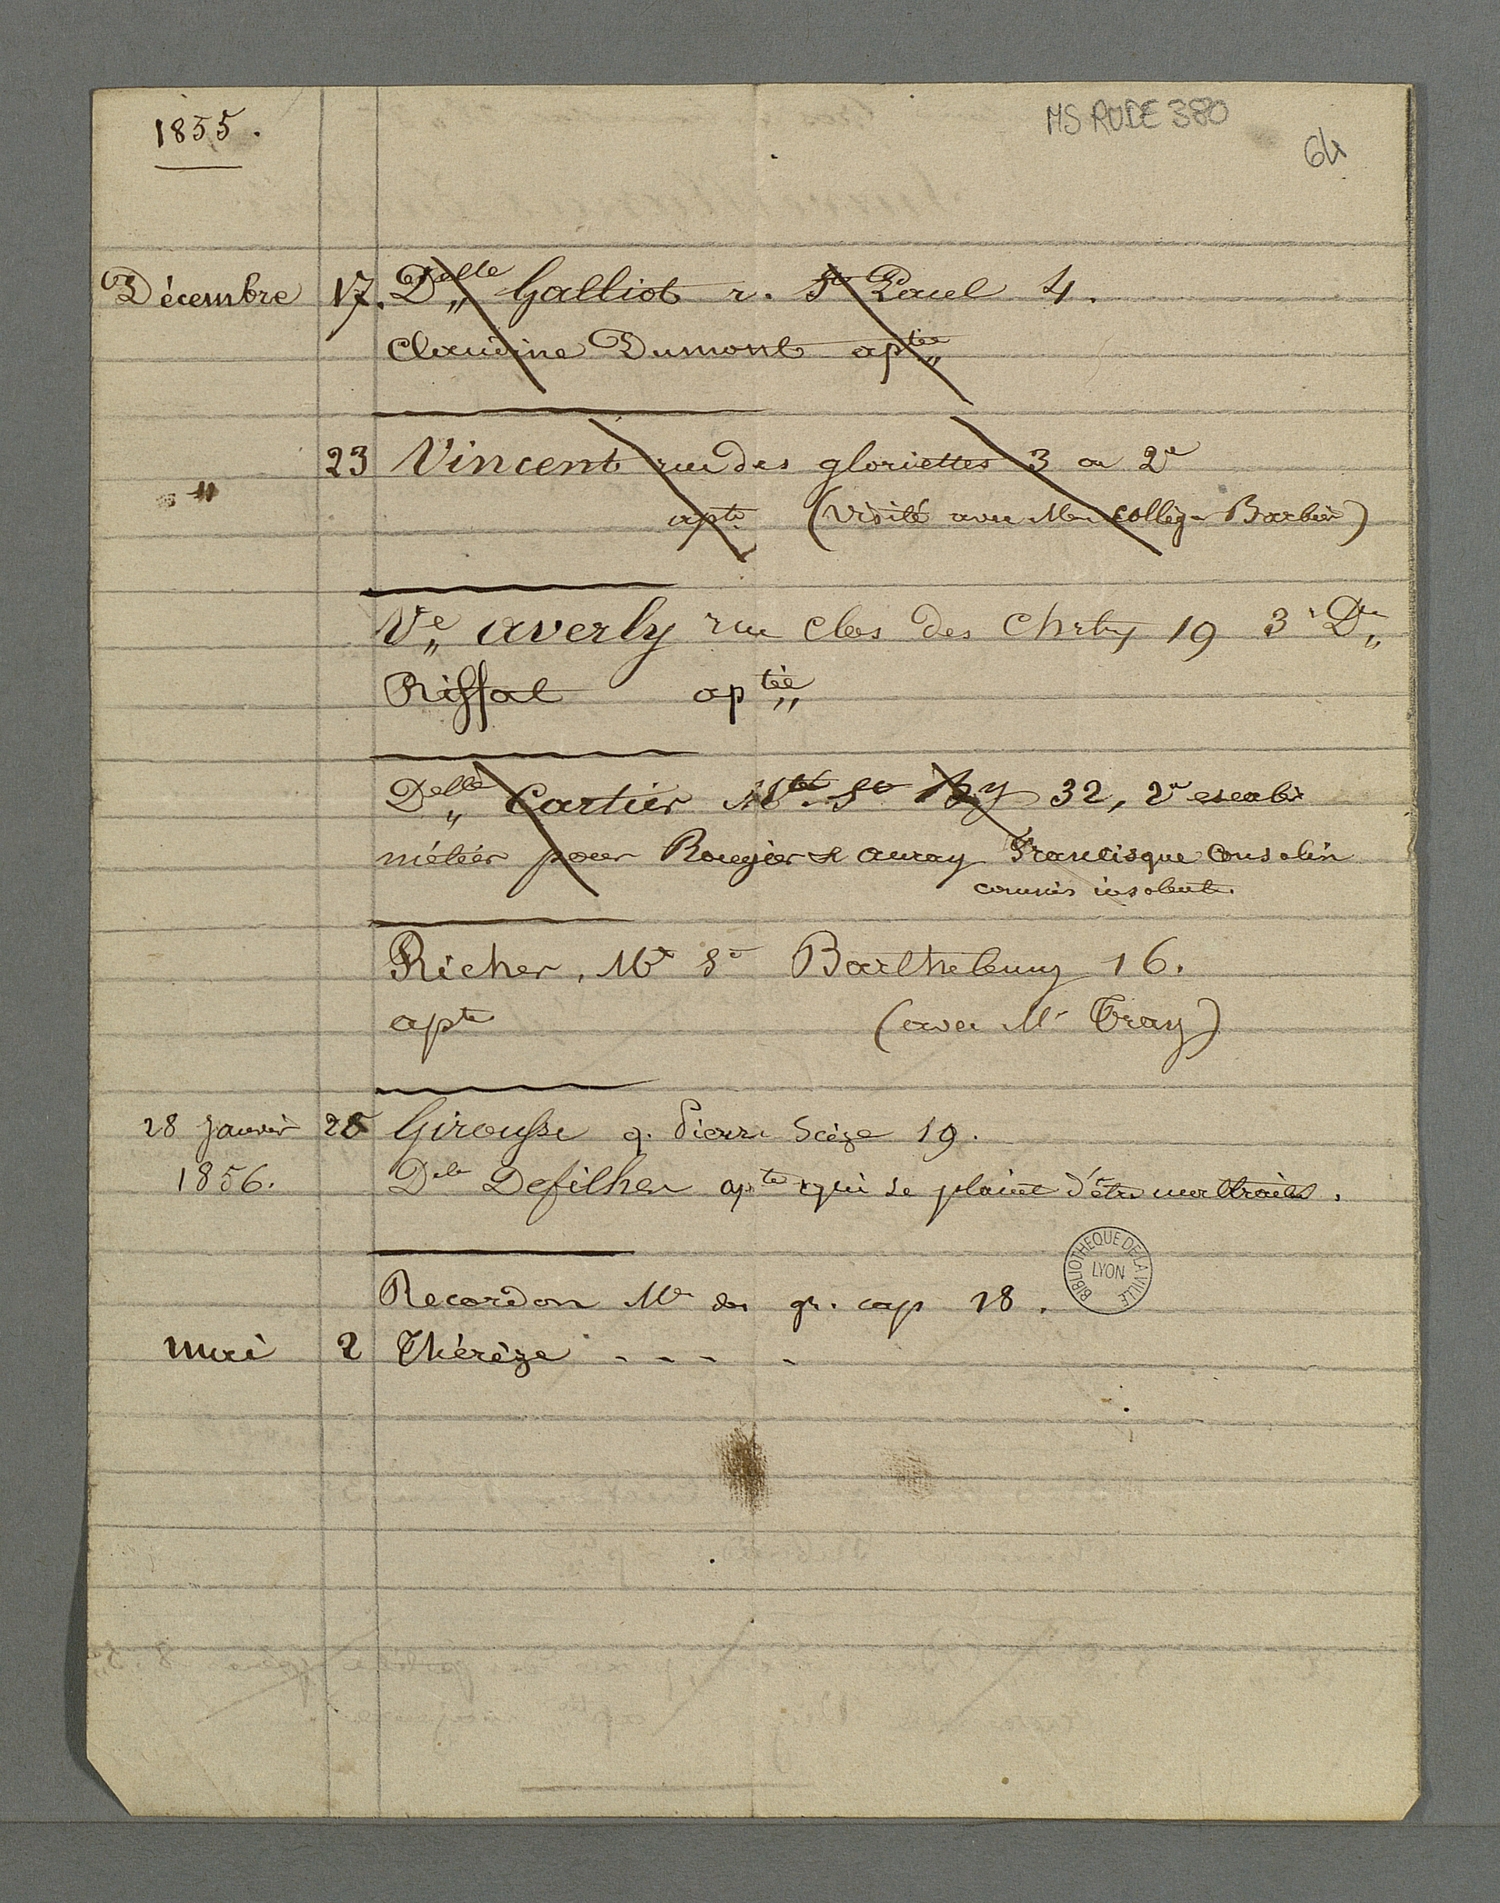 1855.
MS RUDE 380
64
Décembre 17. Delle Galliot r. St Paul 4.
Claudine Dumont aptie
23 Vincent rue des gloriettes 3 au 2e
" apte (visité avec Mon collège Barbier)
Ve averly rue Clos des 19 3e
Riffat aptie
Delle Cartier Mtée St 32, 2e escalir
métier pour Rougier & auray Francisque Consolin
commis insolent.
Richer, Mée St Barthelemy 16.
apte (avec Mr Tray)
28 Janvier Girousse q. Pierre Scize 19.
1856. Delle Defilhes apte qui se plaint d'être maltraité.
Recordon Mée des gr. cap 18.
BIBLIOTHEQUE DE LA VILLE LYON
mai 2 Thérèze - - - -